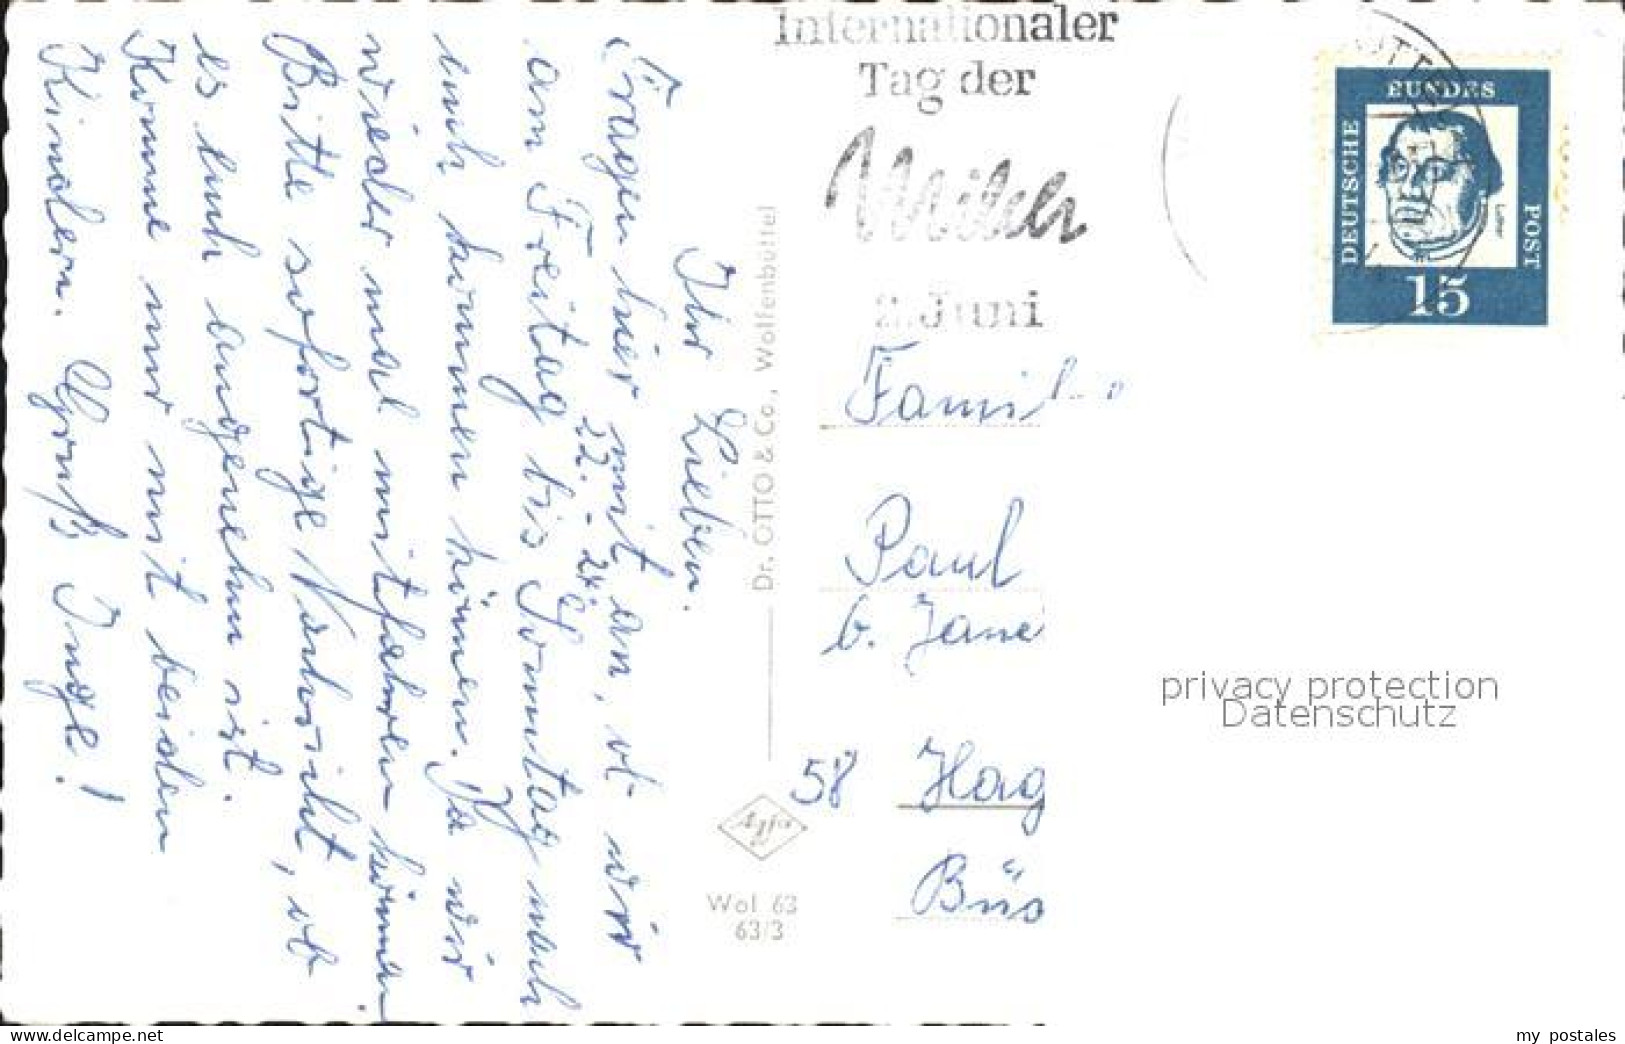 Ihr Lieben.
Fragen hier mit an, ob wir
22. - 24.
am Freitag bis Sonntag nach
euch kommen können. Da wir
wieder mal mitfahren können.
Bitte sofortige Nachricht, ob
es euch angenehm ist.
Komme nur mit beiden
Kindern. Gruß Inge!
Dr. OTTO & Co., Wolfenbüttel
Agfa
Wol 63
63/3
Internationaler
Tag der
Milch
2. Juni
DEUTSCHE
BUNDES
POST
15
Famili
Paul
b. Jane
58 Hag
Büs
privacy protection
Datenschutz
www.delcampe.net
my_postales